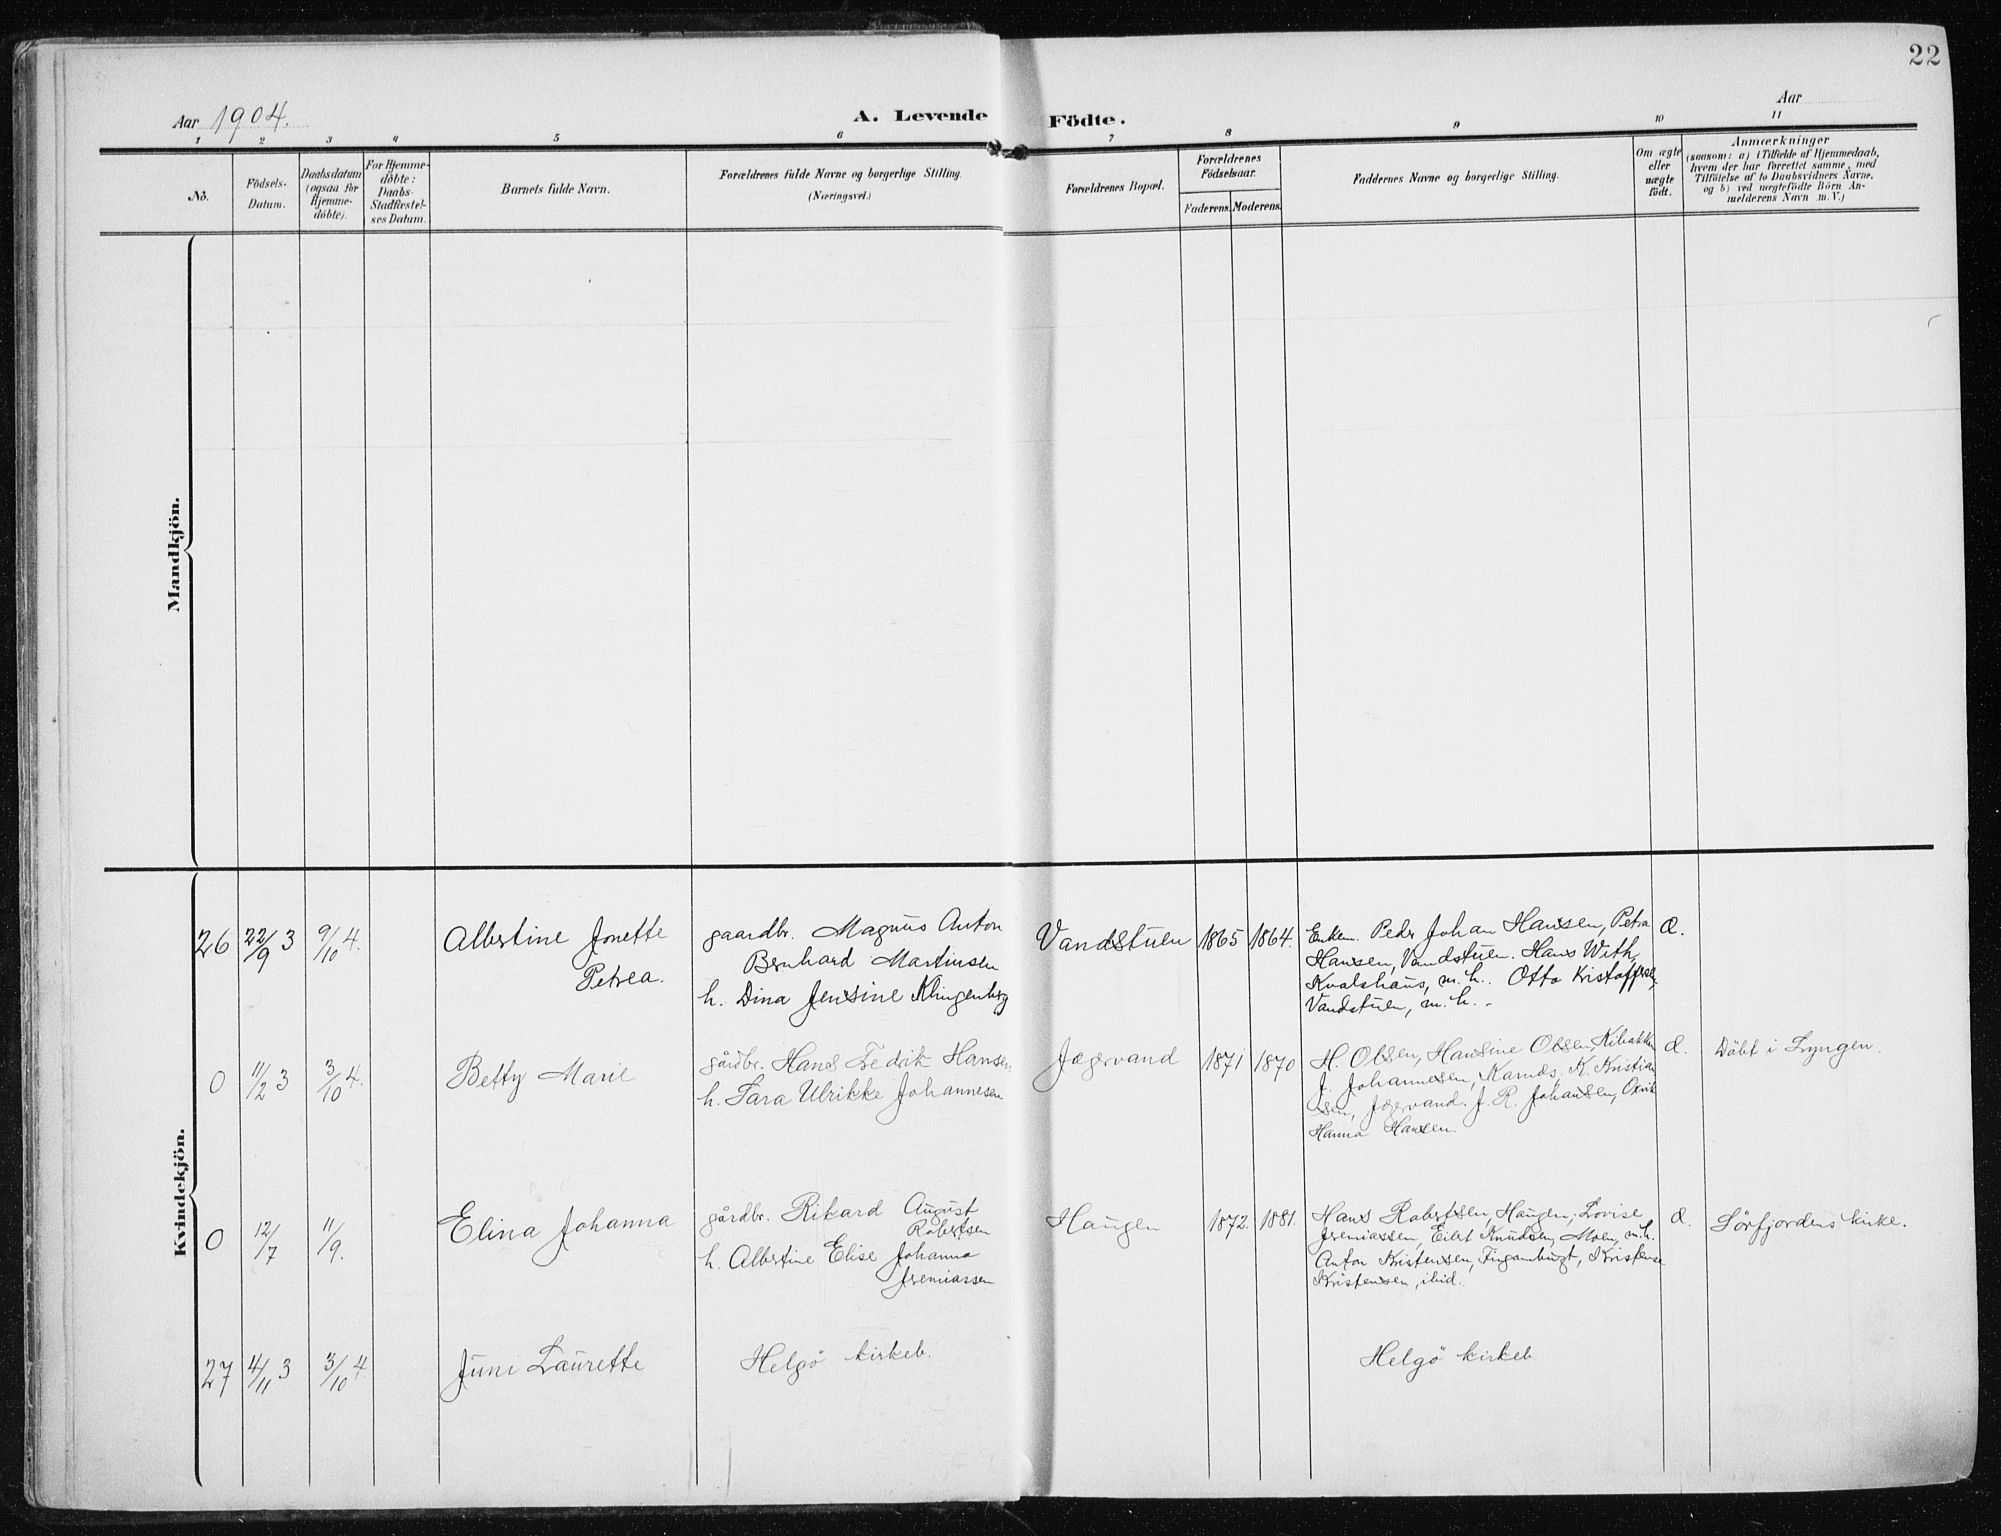 22
Aar 1904.
A. Levende Födte.
Aar
1 2 3 4 5 6 7 8 9 10 11
No.
Födsels-
Datum.
Daabsdatum
(ogsaa for
Hjemme-
döbte).
For Hjemme-
döbte:
Daabs-
Stadfæstel-
ses Datum.
Barnets fulde Navn.
Forældrenes fulde Navne og borgerlige Stilling.
(Næringsvei.)
Forældrenes Bopæl.
Forældrenes
Födselsaar.
Faderens. Moderens.
Faddernes Navne og borgerlige Stilling.
Om ægte
eller
uægte
födt.
Anmærkninger
(saasom: a) i Tilfælde af Hjemmedaab,
hvem der har forrettet samme, med
Tilföielse af to Daabsvidners Navne,
og b) ved uægtefödte Börn An-
melderens Navn m. V.)
Mandkjön.
Kvindekjön.
26 22/9 3 9/10 4.
Albertine Jonette
Petrea.
gaardbr. Magnus Anton
Bernhard Martinsen
h. Dina Jensine Klingenberg
Vandstuen 1865 1864.
Enkem. Peder Johan Hansen, Petra
Hansen, Vandstuen. Hans With,
Kvalshaus, m. h. Otto Kristoffersen,
Vandstuen, m. h. -
Æ.
0 11/2 3 3/10 4.
Betty Marie
gårdbr. Hans Fedrik Hansen
h. Sara Ulrikke Johannesen
Jægervand 1871 1870
H. Olsen, Hansine Olsen,
J. Johannesen, Karnæs. K. Kristian
sen, Jægervand. J. R. Johansen,
Hanna Hansen.
Æ. Döbt i Lyngen.
0 12/7 11/9.
Elina Johanna
gårdbr. Rikard August
Robertsen
h. Albertine Elise Johanna
Jeremiassen
Haugen 1872. 1881.
Hans Robertsen, Haugen, Lovise
Jeremiassen, Eilert Knudsen, Moen, m. h.
Anton Kristensen, Kristense
Kristensen, ibid.
Æ. Sörfjordens kirke.
27 4/11 3 3/10 4
Juni Laurette
Helgö kirkeb.
Helgö kirkeb.